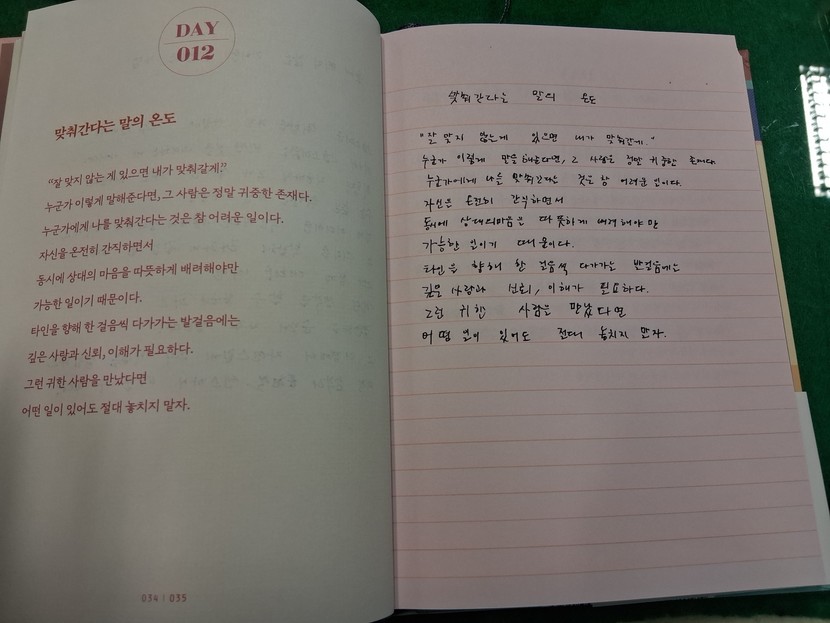 DAY
012
맞춰간다는 말의 온도
"잘 맞지 않는 게 있으면 내가 맞춰갈게."
누군가 이렇게 말해준다면, 그 사람은 정말 귀중한 존재다.
누군가에게 나를 맞춰간다는 것은 참 어려운 일이다.
자신을 온전히 간직하면서
동시에 상대의 마음을 따뜻하게 배려해야만
가능한 일이기 때문이다.
타인을 향해 한 걸음씩 다가가는 발걸음에는
깊은 사랑과 신뢰, 이해가 필요하다.
그런 귀한 사람을 만났다면
어떤 일이 있어도 절대 놓치지 말자.
034 | 035
맞춰간다는 말의 온도
"잘 맞지 않는게 있으면 내가 맞춰갈게."
누군가 이렇게 말을 해준다면, 그 사람은 정말 귀중한 존재다.
누군가에게 나를 맞춰간다는 것은 참 어려운 일이다.
자신은 온전히 간직하면서
동시에 상대의마음을 따뜻하게 배려해야만
가능한 일이기 때문이다.
타인을 향해 한 걸음씩 다가가는 발걸음에는
깊은 사랑과 신뢰, 이해가 필요하다.
그런 귀한 사람을 만났다면
어떤 일이 있어도 절대 놓치지 말자.